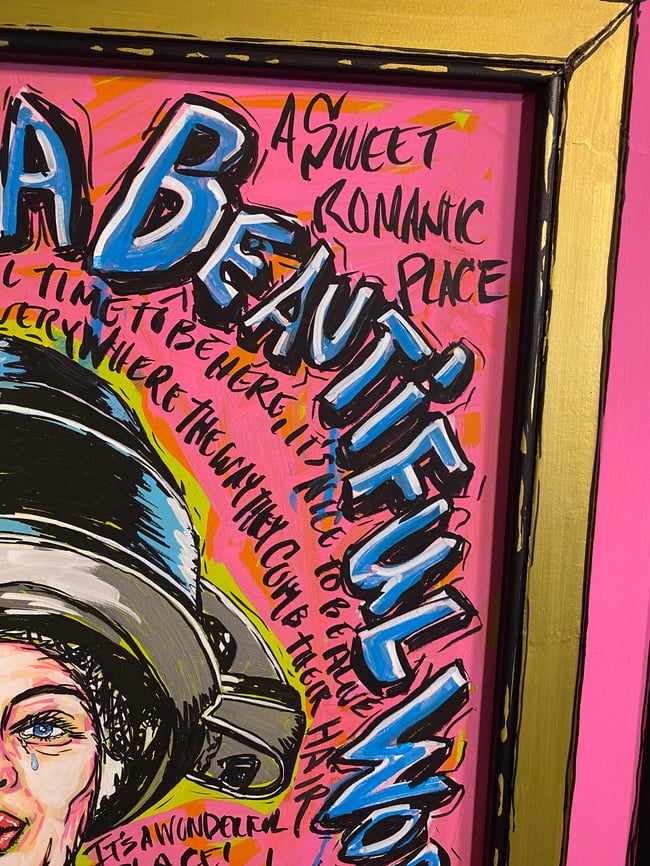 A BEAUTIFUL WO
A SWEET
ROMANTIC
PLACE
L TIME TO BE HERE, IT'S NICE TO BE ALIVE
VERYWHERE THE WAY THEY COMB THEIR HAIR
IT'S A WONDERFUL
PLACE!